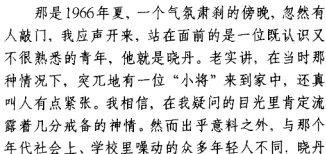 那是1966年夏，一个气氛肃刹的傍晚，忽然有
人敲门，我应声开来，站在面前的是一位既认识又
不很熟悉的青年，他就是晓丹。老实讲，在当时那
种情况下，突兀地有一位“小将”来到家中，还真
叫人有点紧张。我相信，在我疑问的目光里肯定流
露着几分戒备的神情。然而出乎意料之外，与那个
年代社会上、学校里噪动的众多年轻人不同，晓丹